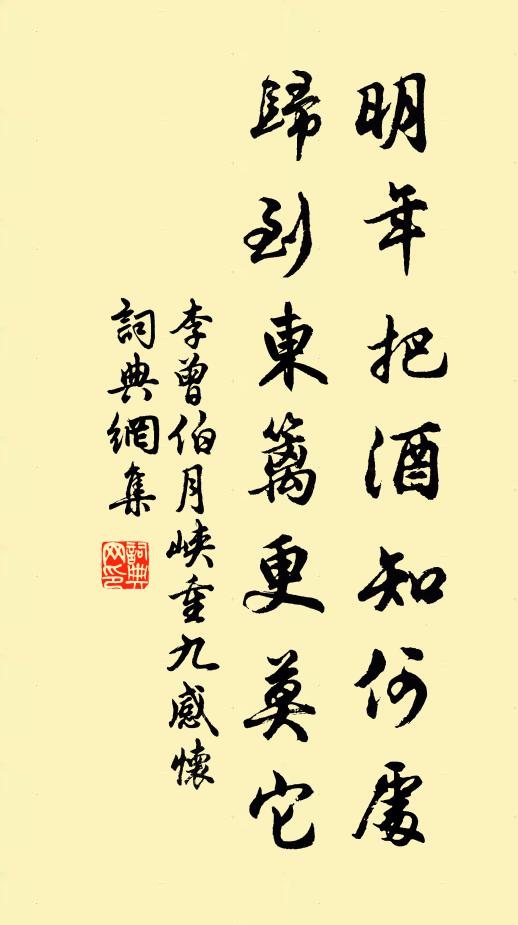 明年把酒知何處
歸到東籬更莫它
李曾伯月峽重九感懷
詞典網集
詞典網印